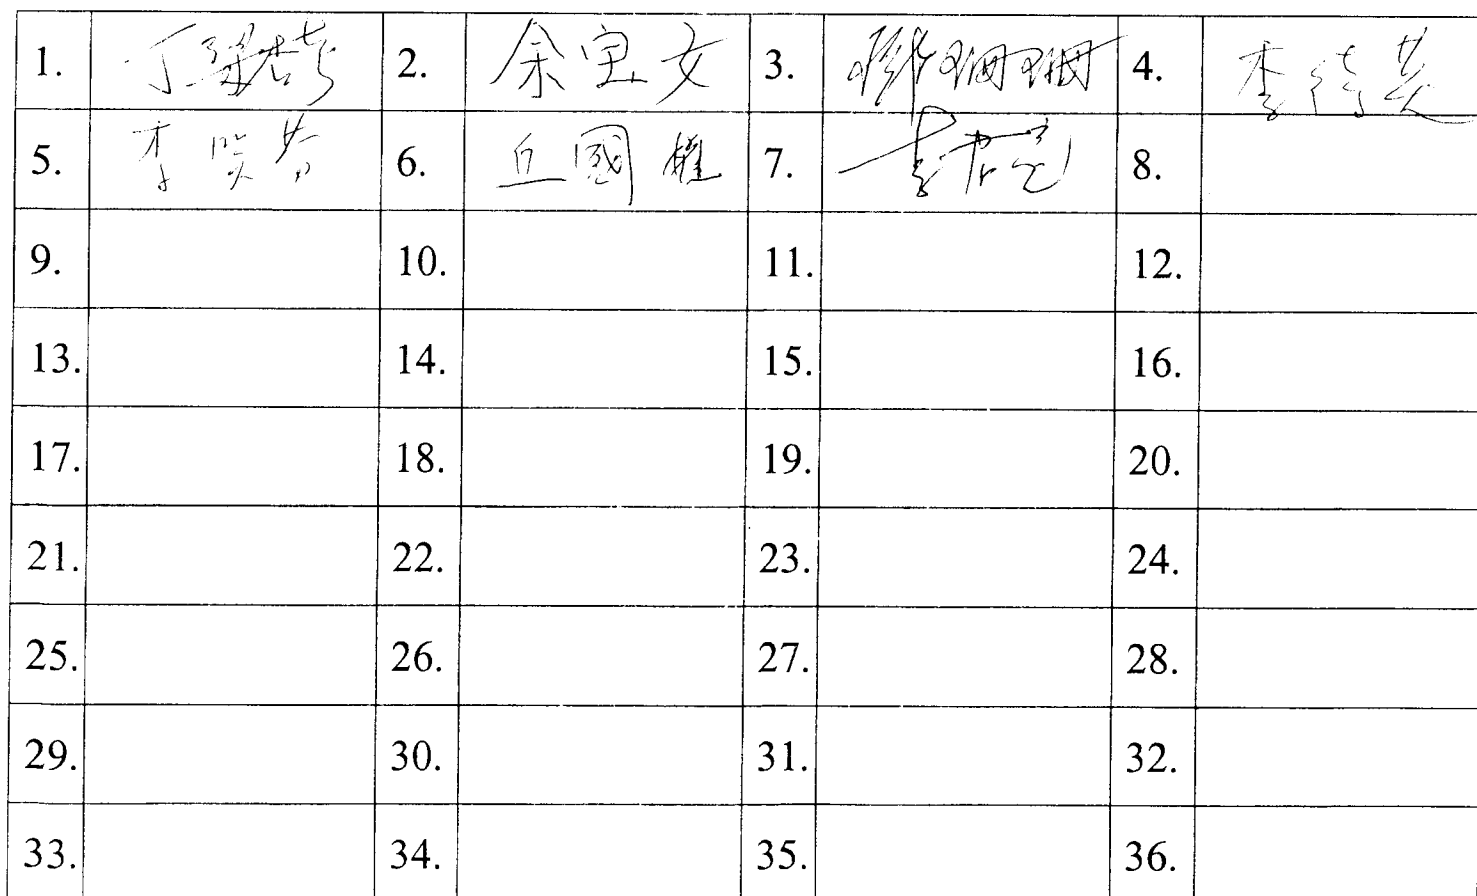 1. 丁梁杏芳 2. 余宝文 3. 珊珊 4. 李綺芬
5. 李笑芳 6. 丘國權 7. 8.
9. 10. 11. 12.
13. 14. 15. 16.
17. 18. 19. 20.
21. 22. 23. 24.
25. 26. 27. 28.
29. 30. 31. 32.
33. 34. 35. 36.